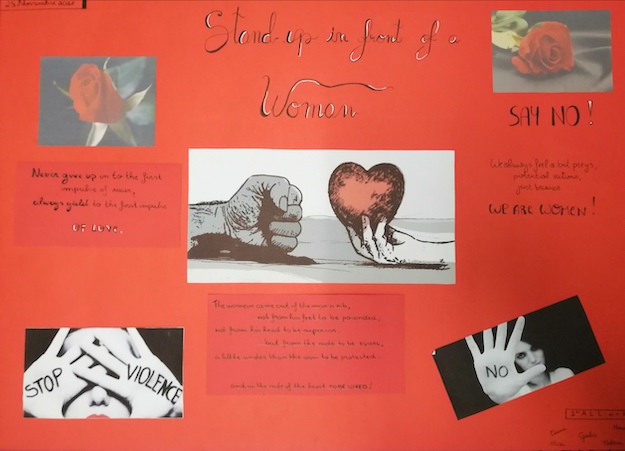 25 Novembre
Stand up in front of a
Woman
SAY NO!
Never give up on to the first
impulse of
always yield to the first impulse
OF LOVE.
We always feel a bit preys,
potential victims,
just because
WE ARE WOMEN!
The woman came out of the man's rib,
not from his feet to be
not from his head to be
but from the side to be equal,
a little under than the arm to be protected
and on the side of the heart TO BE LOVED!
STOP VIOLENCE
NO